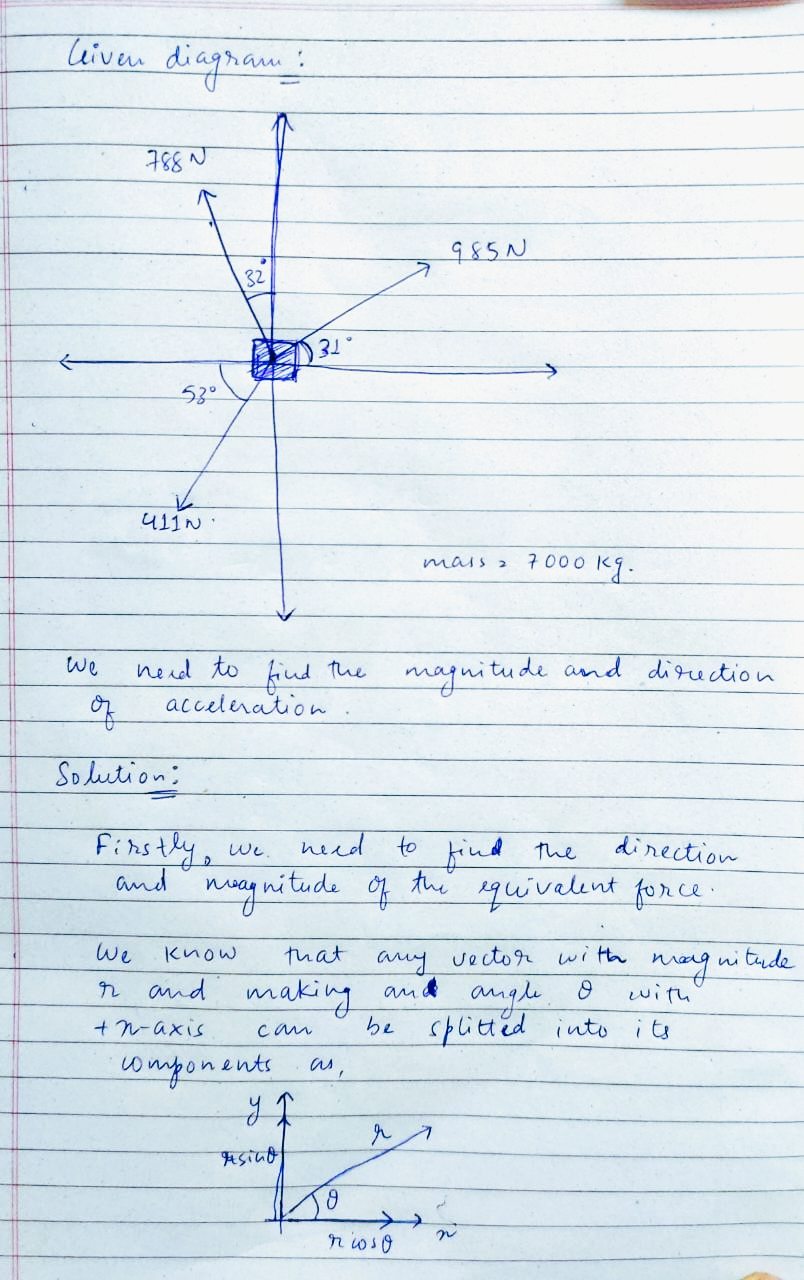 Given diagram:
788N
985N
32°
31°
53°
411N.
mass = 7000 kg.
We need to find the magnitude and direction
of acceleration.
Solution:
Firstly, we need to find the direction
and magnitude of the equivalent force.
We know that any vector with magnitude
r and making and angle θ with
+x-axis can be splitted into its
components as,
y
r
rsinθ
θ
rcosθ
x